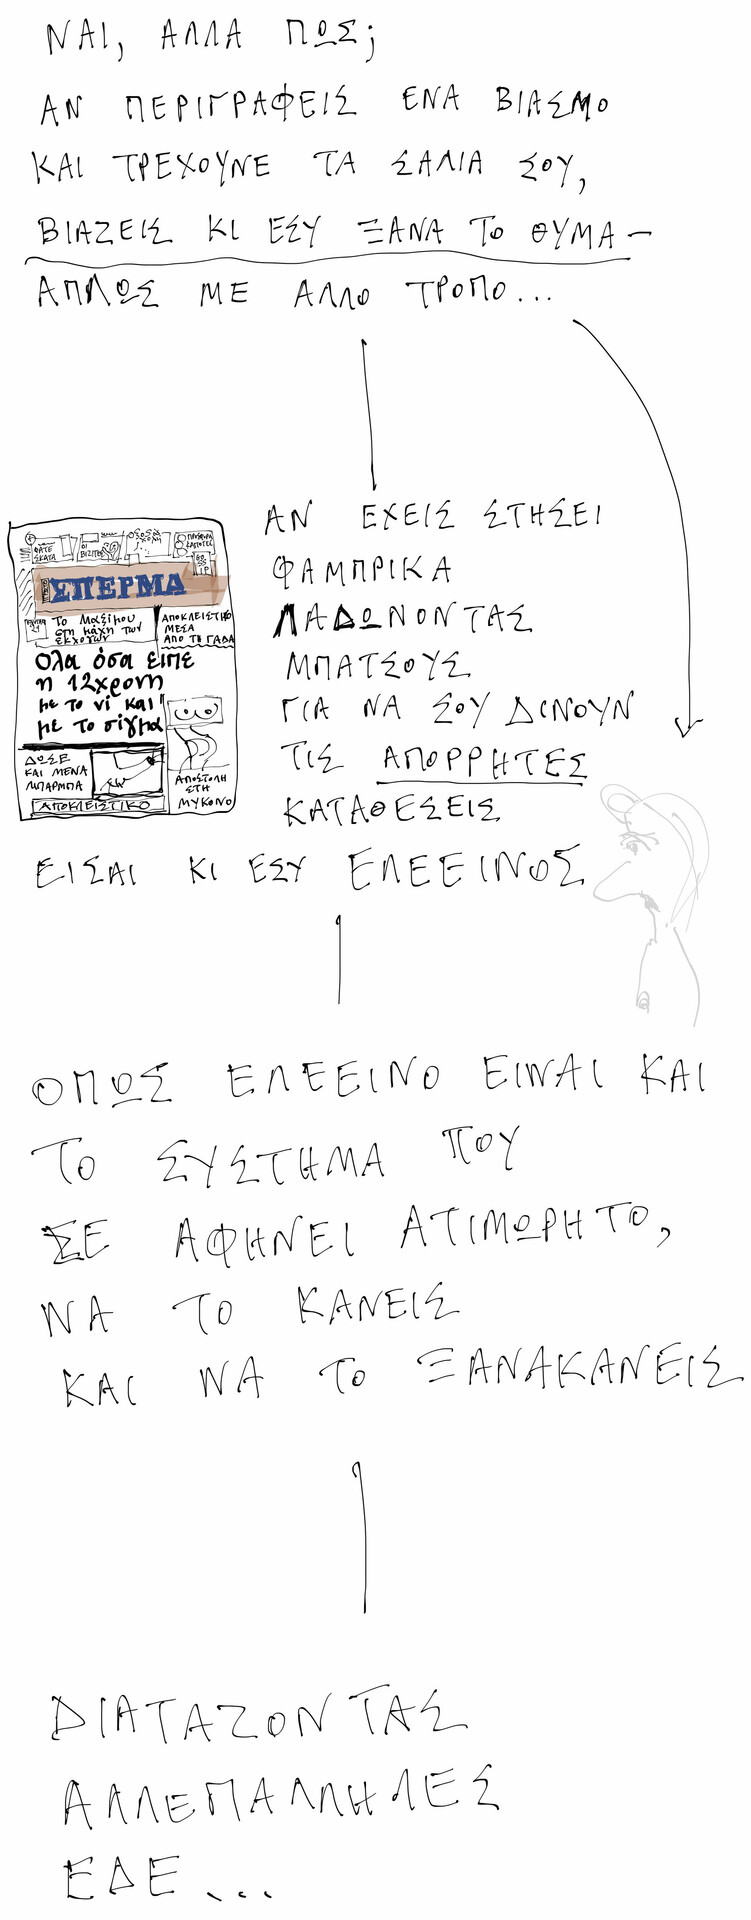 ΝΑΙ, ΑΛΛΑ ΠΩΣ;
ΑΝ ΠΕΡΙΓΡΑΦΕΙΣ ΕΝΑ ΒΙΑΣΜΟ
ΚΑΙ ΤΡΕΧΟΥΝΕ ΤΑ ΣΑΛΙΑ ΣΟΥ,
ΒΙΑΖΕΙΣ ΚΙ ΕΣΥ ΞΑΝΑ ΤΟ ΘΥΜΑ –
ΑΠΛΩΣ ΜΕ ΑΛΛΟ ΤΡΟΠΟ...
ΑΝ ΕΧΕΙΣ ΣΤΗΣΕΙ
ΦΑΜΠΡΙΚΑ
ΛΑΔΩΝΟΝΤΑΣ
ΜΠΑΤΣΟΥΣ
ΓΙΑ ΝΑ ΣΟΥ ΔΙΝΟΥΝ
ΤΙΣ ΑΠΟΡΡΗΤΕΣ
ΚΑΤΑΘΕΣΕΙΣ
ΦΑΤΕ
ΣΚΑΤΑ
ΟΙ
ΒΙΖΙΤΕΣ
ΣΠΕΡΜΑ
Το Μαξίμου
στη μάχη των
ΑΠΟΚΛΕΙΣΤΙΚΟ
ΜΕΣΑ
ΑΠΟ ΤΗ ΓΑΔΑ
Ολα όσα είπε
η 12χρονη
με το νί και
με το σίγμα
ΔΩΣΕ
ΚΑΙ ΜΕΝΑ
ΜΠΑΡΜΠΑ
ΑΠΟΚΛΕΙΣΤΙΚΟ
ΑΠΟΣΤΟΛΗ
ΣΤΗ
ΜΥΚΟΝΟ
ΕΙΣΑΙ ΚΙ ΕΣΥ ΕΛΕΕΙΝΟΣ
ΟΠΩΣ ΕΛΕΕΙΝΟ ΕΙΝΑΙ ΚΑΙ
ΤΟ ΣΥΣΤΗΜΑ ΠΟΥ
ΣΕ ΑΦΗΝΕΙ ΑΤΙΜΩΡΗΤΟ,
ΝΑ ΤΟ ΚΑΝΕΙΣ
ΚΑΙ ΝΑ ΤΟ ΞΑΝΑΚΑΝΕΙΣ
ΔΙΑΤΑΖΟΝΤΑΣ
ΑΛΛΕΠΑΛΛΗΛΕΣ
ΕΔΕ...